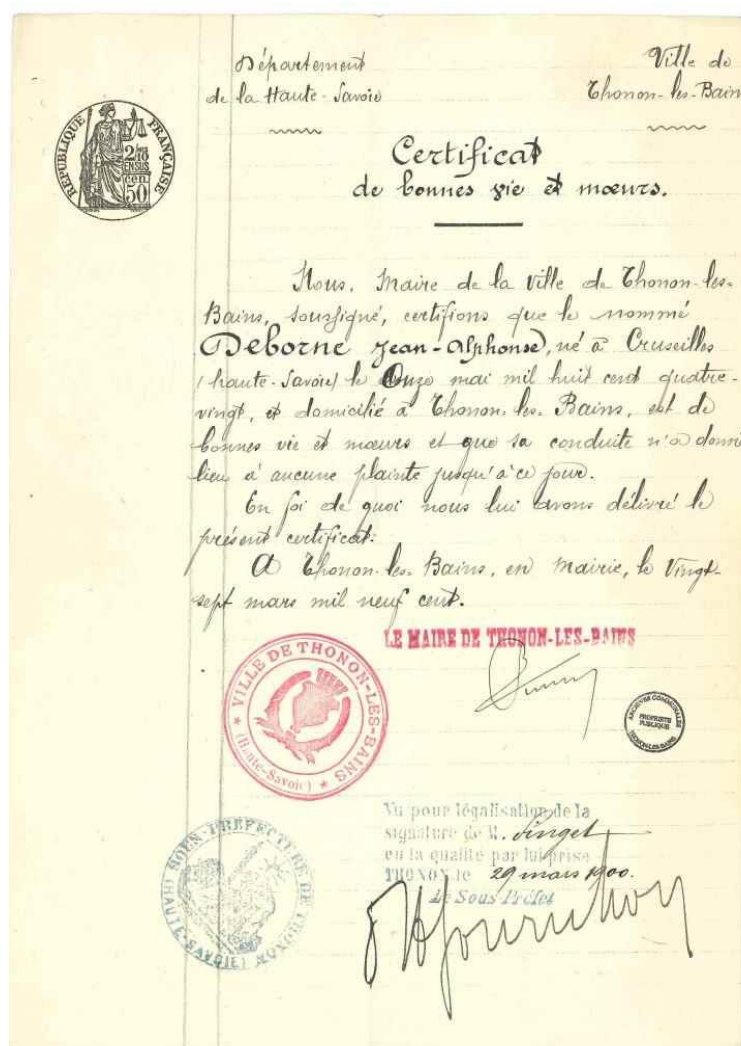 Département
de la Haute-Savoie
Ville de
Thonon-les-Bains
RÉPUBLIQUE FRANÇAISE
2/10
EN SUS
cen
50
Certificat
de bonnes vie et mœurs.
Nous, Maire de la ville de Thonon-les-
Bains, soussigné, certifions que le nommé
Deborne Jean-Alphonse, né à Cruseilles
(haute-Savoie) le Onze mai mil huit cent quatre-
vingt, et domicilié à Thonon-les-Bains, est de
bonnes vie et mœurs et que sa conduite n'a donné
lieu à aucune plainte jusqu'à ce jour.
En foi de quoi nous lui avons délivré le
présent certificat.
A Thonon-les-Bains, en Mairie, le Vingt-
sept mars mil neuf cent.
LE MAIRE DE THONON-LES-BAINS
VILLE DE THONON-LES-BAINS
(Haute-Savoie)
ARCHIVES COMMUNALES
PROPRIÉTÉ
PUBLIQUE
THONON-LES-BAINS
Vu pour légalisation de la
signature de M. Pinget
en la qualité par lui prise
THONON, le 29 mars 1900.
Le Sous Préfet
SOUS-PRÉFECTURE DE THONON
(HAUTE-SAVOIE)